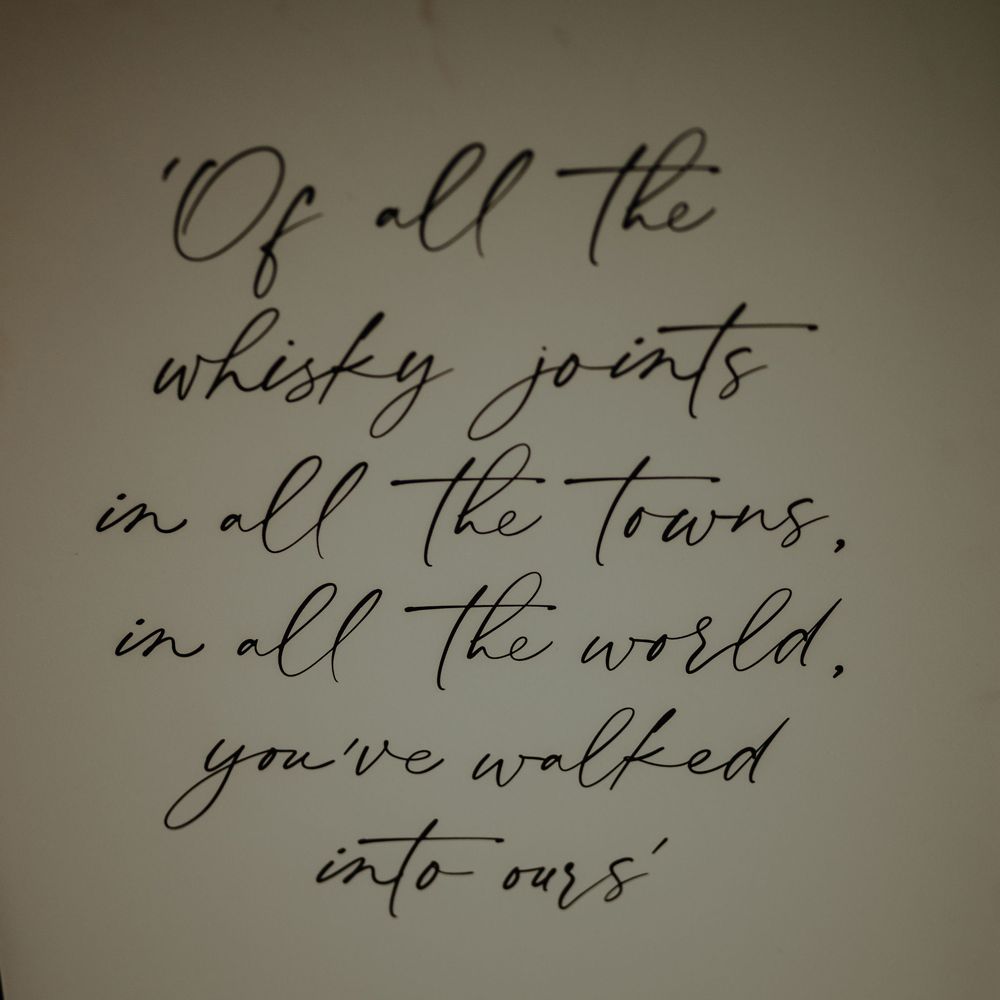 'Of all the
whisky joints
in all the towns,
in all the world,
you've walked
into ours'